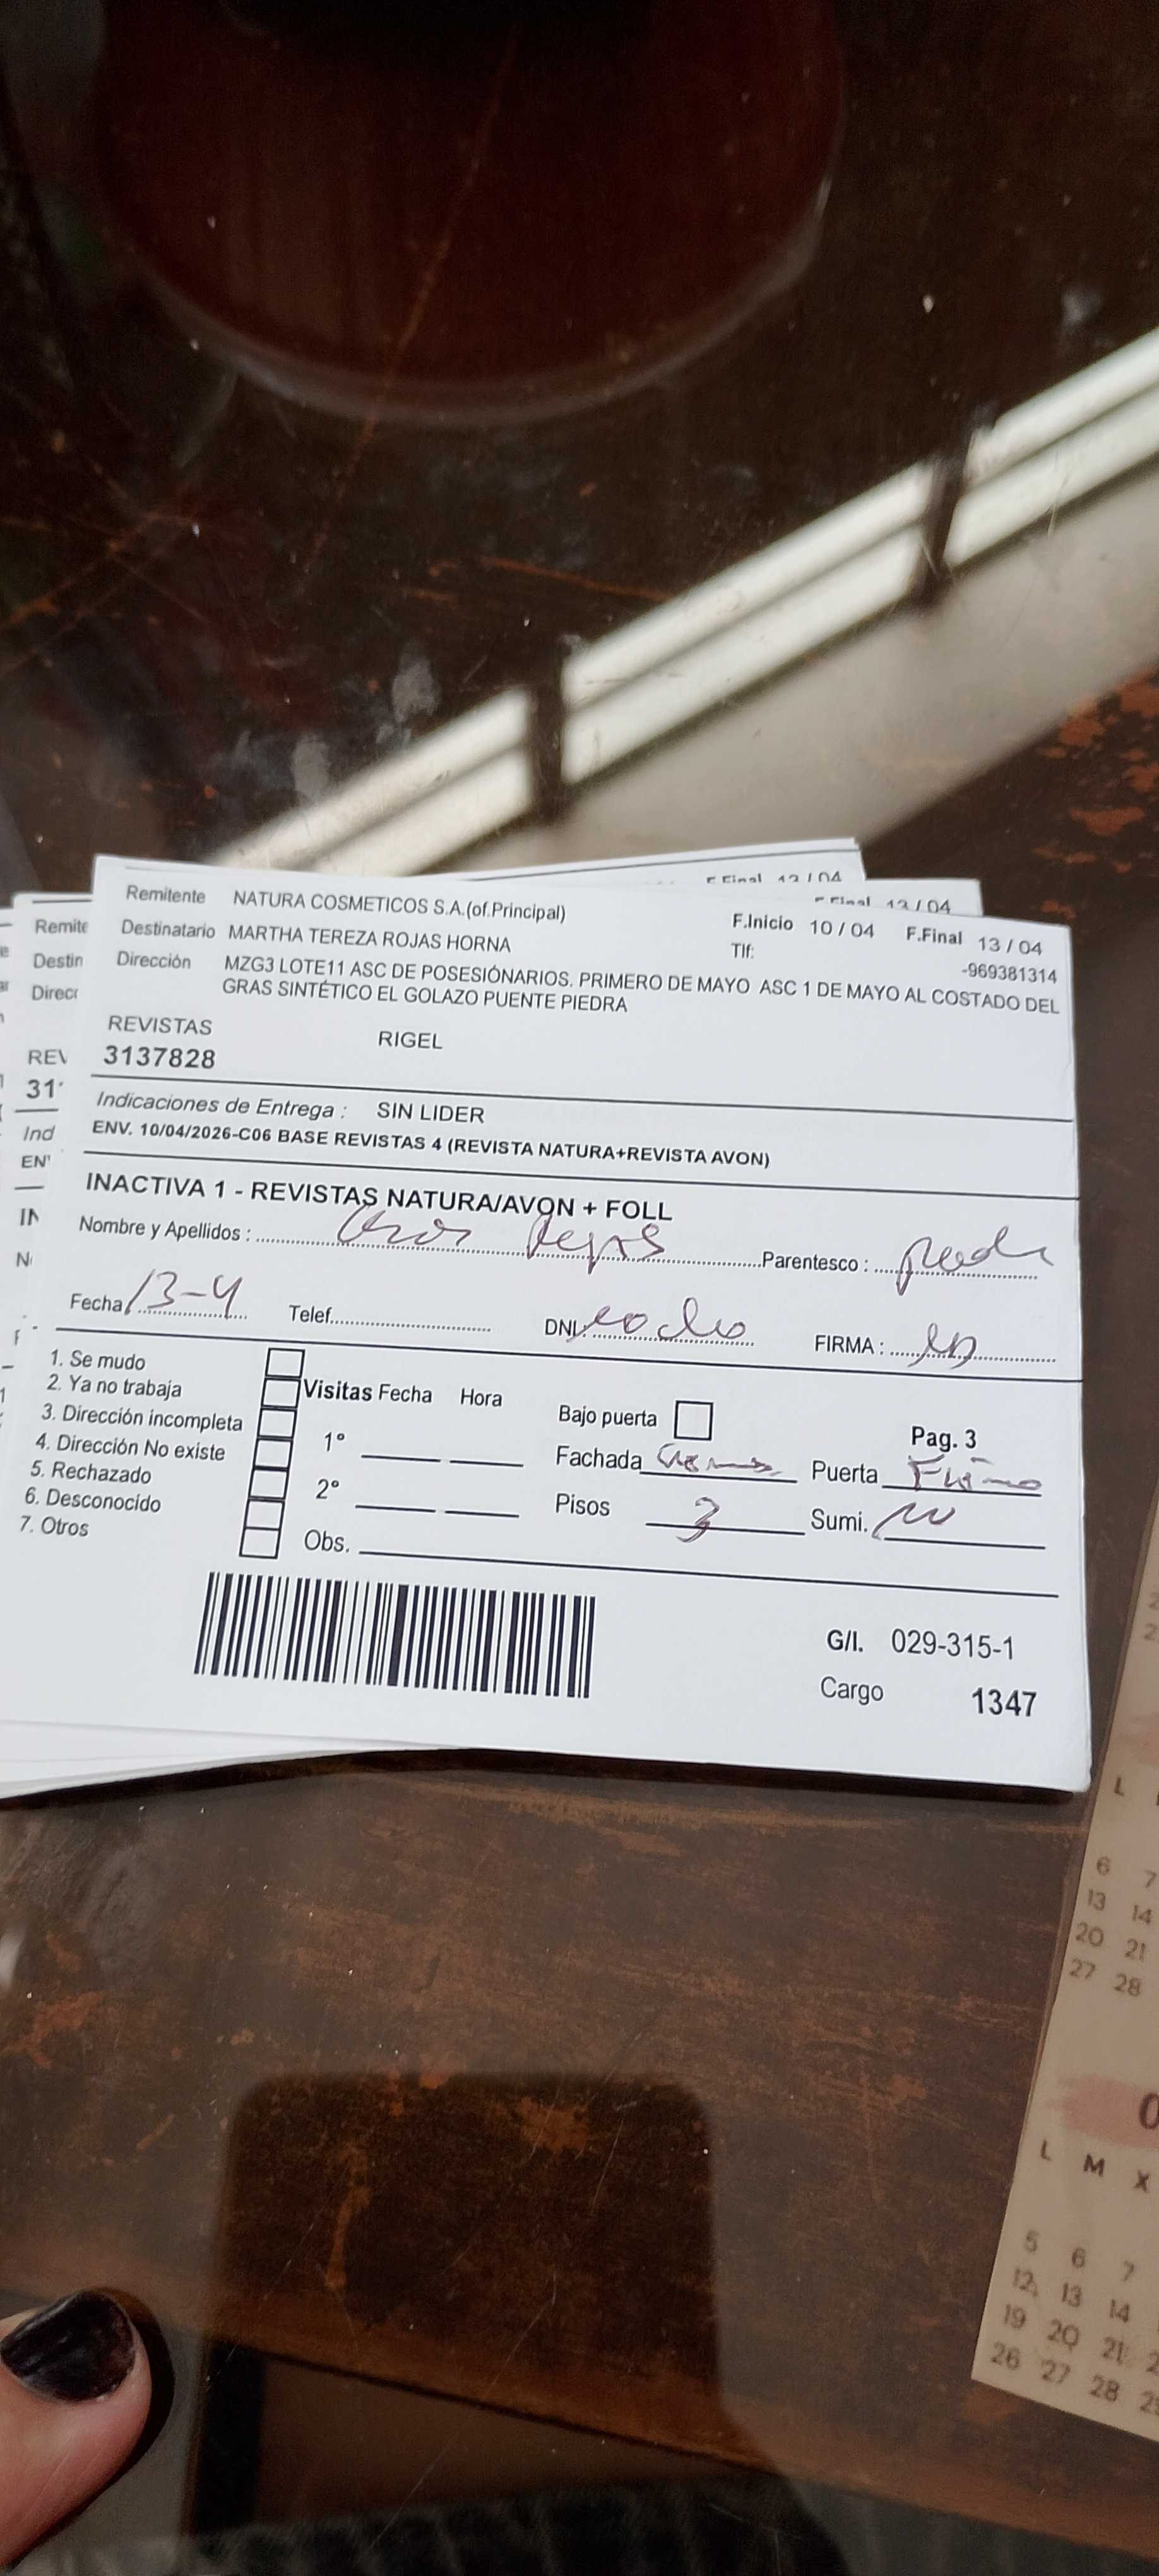 F.Final 13 / 04
F.Final 13 / 04
Remitente NATURA COSMETICOS S.A.(of.Principal) F.Inicio 10 / 04 F.Final 13 / 04
Destinatario MARTHA TEREZA ROJAS HORNA Tlf: -969381314
Dirección MZG3 LOTE11 ASC DE POSESIÓNARIOS. PRIMERO DE MAYO ASC 1 DE MAYO AL COSTADO DEL
GRAS SINTÉTICO EL GOLAZO PUENTE PIEDRA
REVISTAS RIGEL
3137828
Indicaciones de Entrega : SIN LIDER
ENV. 10/04/2026-C06 BASE REVISTAS 4 (REVISTA NATURA+REVISTA AVON)
INACTIVA 1 - REVISTAS NATURA/AVON + FOLL
Nombre y Apellidos : Parentesco :
Fecha 13-4 Telef. DNI: FIRMA :
1. Se mudo
2. Ya no trabaja
3. Dirección incompleta
4. Dirección No existe
5. Rechazado
6. Desconocido
7. Otros
Visitas Fecha Hora
1°
2°
Obs.
Bajo puerta Pag. 3
Fachada Puerta
Pisos 3 Sumi.
G/I. 029-315-1
Cargo 1347
Remite
Destin
Direcc
REV
31
Ind
EN
L
6 7
13 14
20 21
27 28
0
L M X
5 6 7
12 13 14
19 20 21
26 27 28